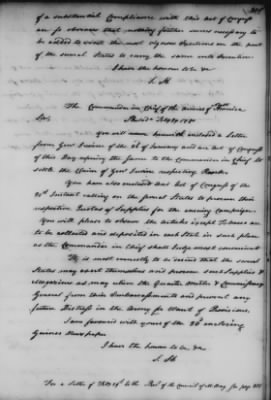 of a substantial Compliance with this Act of Congress
are so obvious that nothing farther seems necessary to
be added to excite the most vigorous Exertions on the part
of the several States to carry the same into Execution.
I have the honor to be &c
S. H
The Commander in Chief of the armies of America
Sir, Philad Feby 29 1780
You will herewith inclosed a Letter
from Genl Irvine of the of January and an Act of Congress
of this Day referring the same to the Commander in Chief to
settle the Claim of Genl Irvine respecting Rank.
You have also inclosed an Act of Congress of the
25th Instant calling on the several States to procure their
respective Quotas of Supplies for the ensuing Campaign.
You will please to observe the articles except Tobacco are
to be collected and deposited in each State in such places
as the Commander in Chief shall judge most convenient
It is most earnestly to be desired that the several
States may exert themselves and procure such Supplies &
Magazines as may relieve the Quarter Master & Commissary
General from their Embarrassments and prevent any
future Distress in the Army for Want of Provisions.
I am favoured with yours of the 23d enclosing
Gaines News paper
I have the honor to be &c
S. H
For a Letter of Feby 29th to the Prest of the Council of M. Bay see page